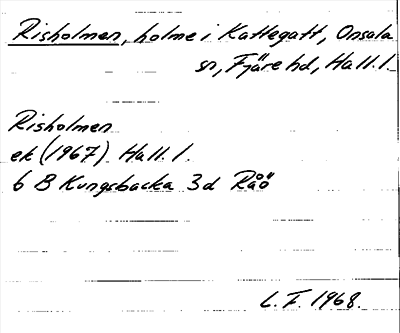 Risholmen, holme i Kattegatt, Onsala
sn, Fjäre hd, Hall. l.
Risholmen
ek (1967) Hall. l.
6 B Kungsbacka 3d Råö
L. F. 1968.